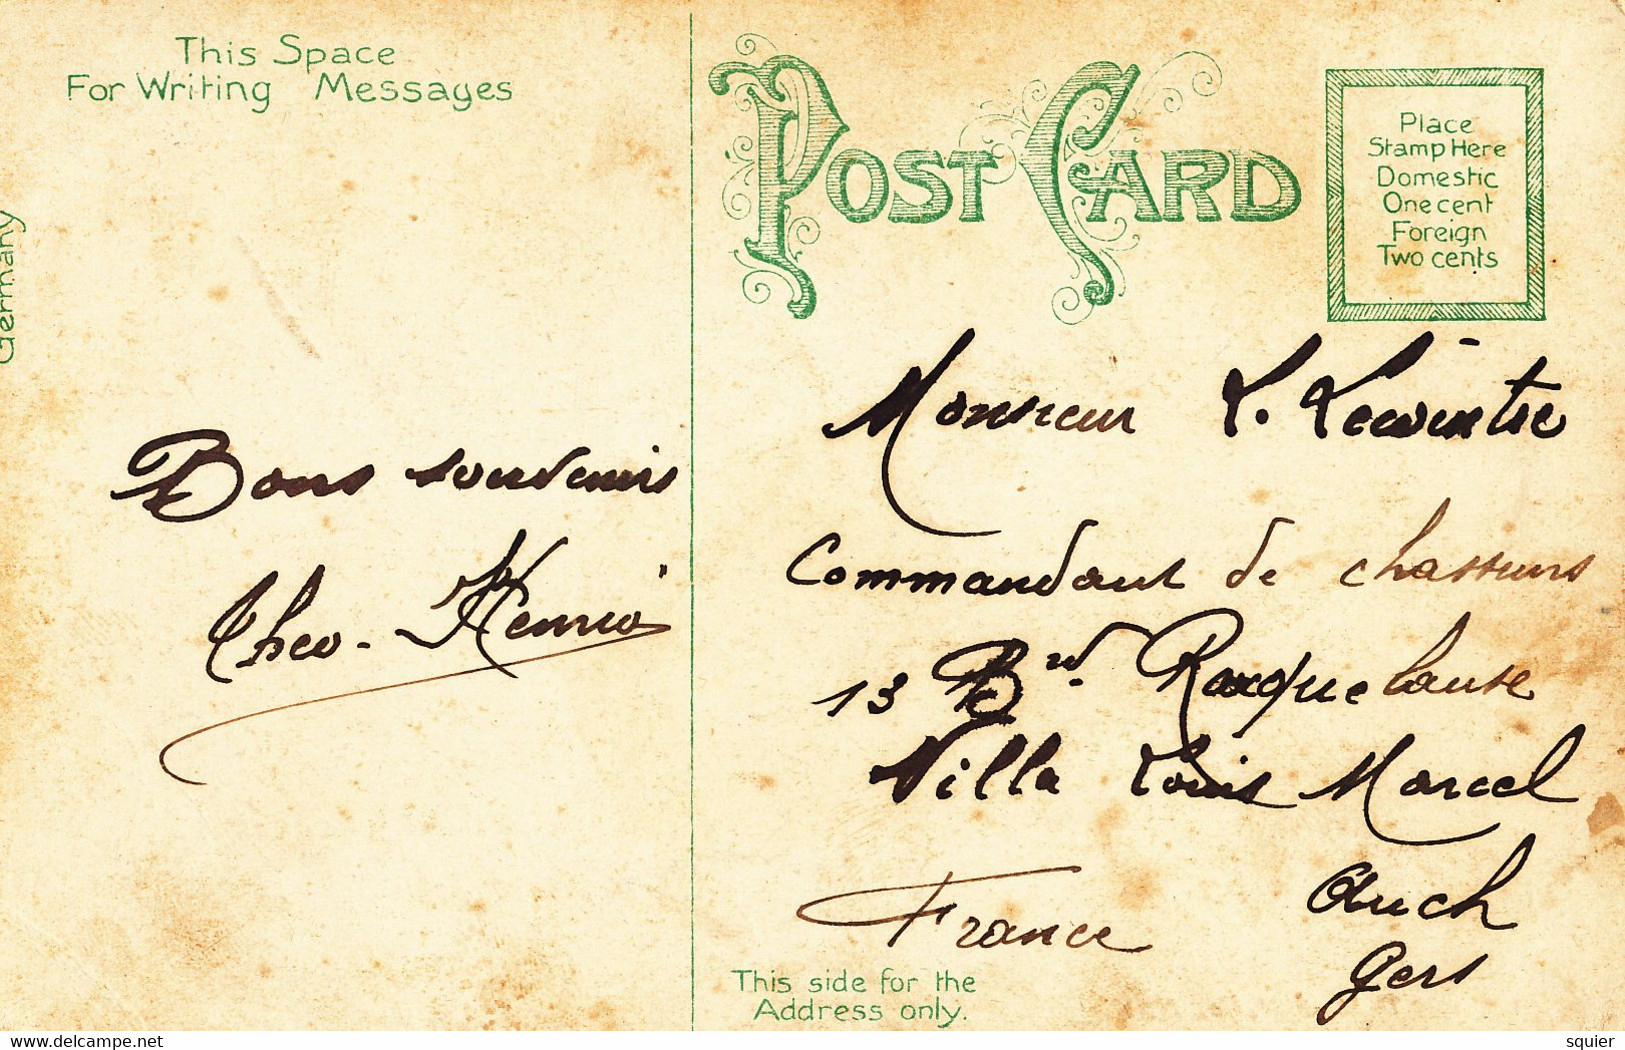 This Space
For Writing Messages
Germany
Bons souvenirs
Theo. Henrio
POST CARD
Place
Stamp Here
Domestic
One cent
Foreign
Two cents
Monsieur L. Lecointre
Commandant de chasseurs
13 Bvd. Roquelaure
Villa Louis Marcel
Auch
France
Gers
This side for the
Address only.
delcampe.net
squier